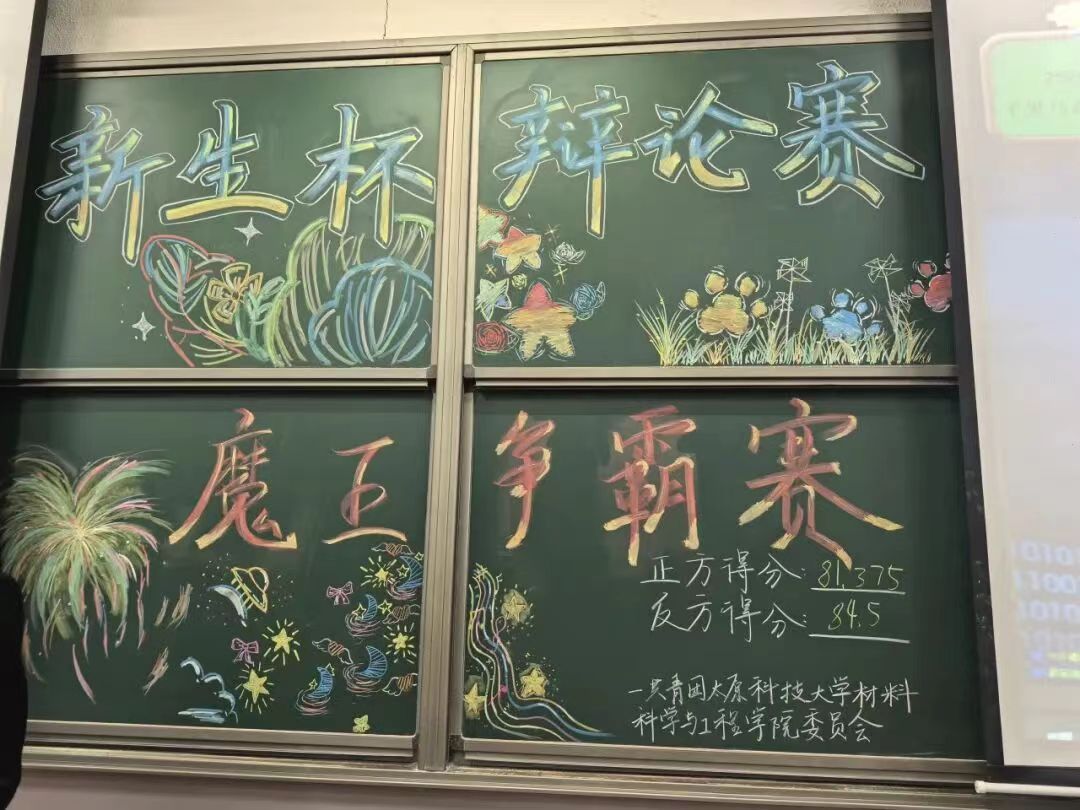 新生杯 辩论赛
魔王争霸赛
正方得分: 81.375
反方得分: 84.5
一共青团太原科技大学材料
科学与工程学院委员会
1010
1100
1010